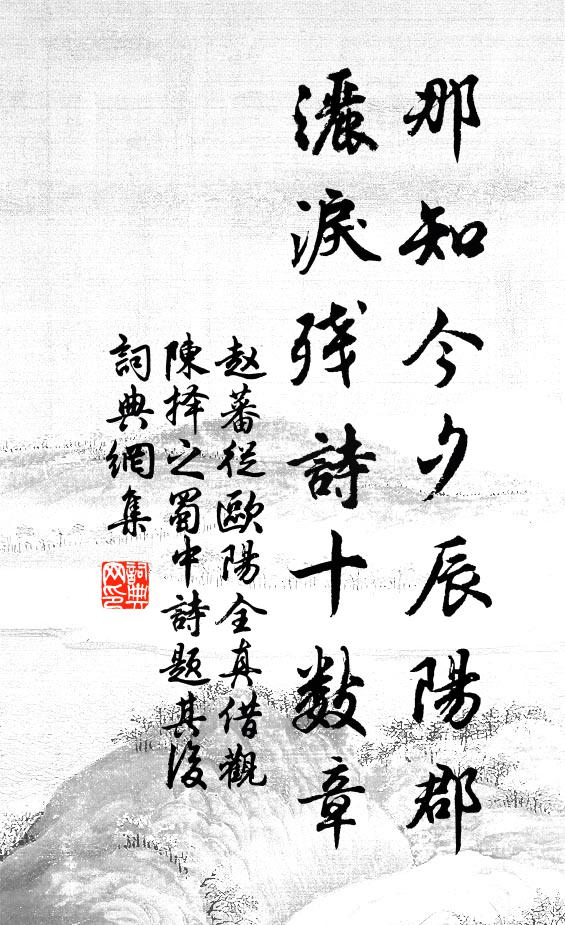 那知今夕辰陽郡
灑淚残詩十数章
赵蕃從歐陽全真借觀
陳择之蜀中詩題其後
詞典網集
詞典网印